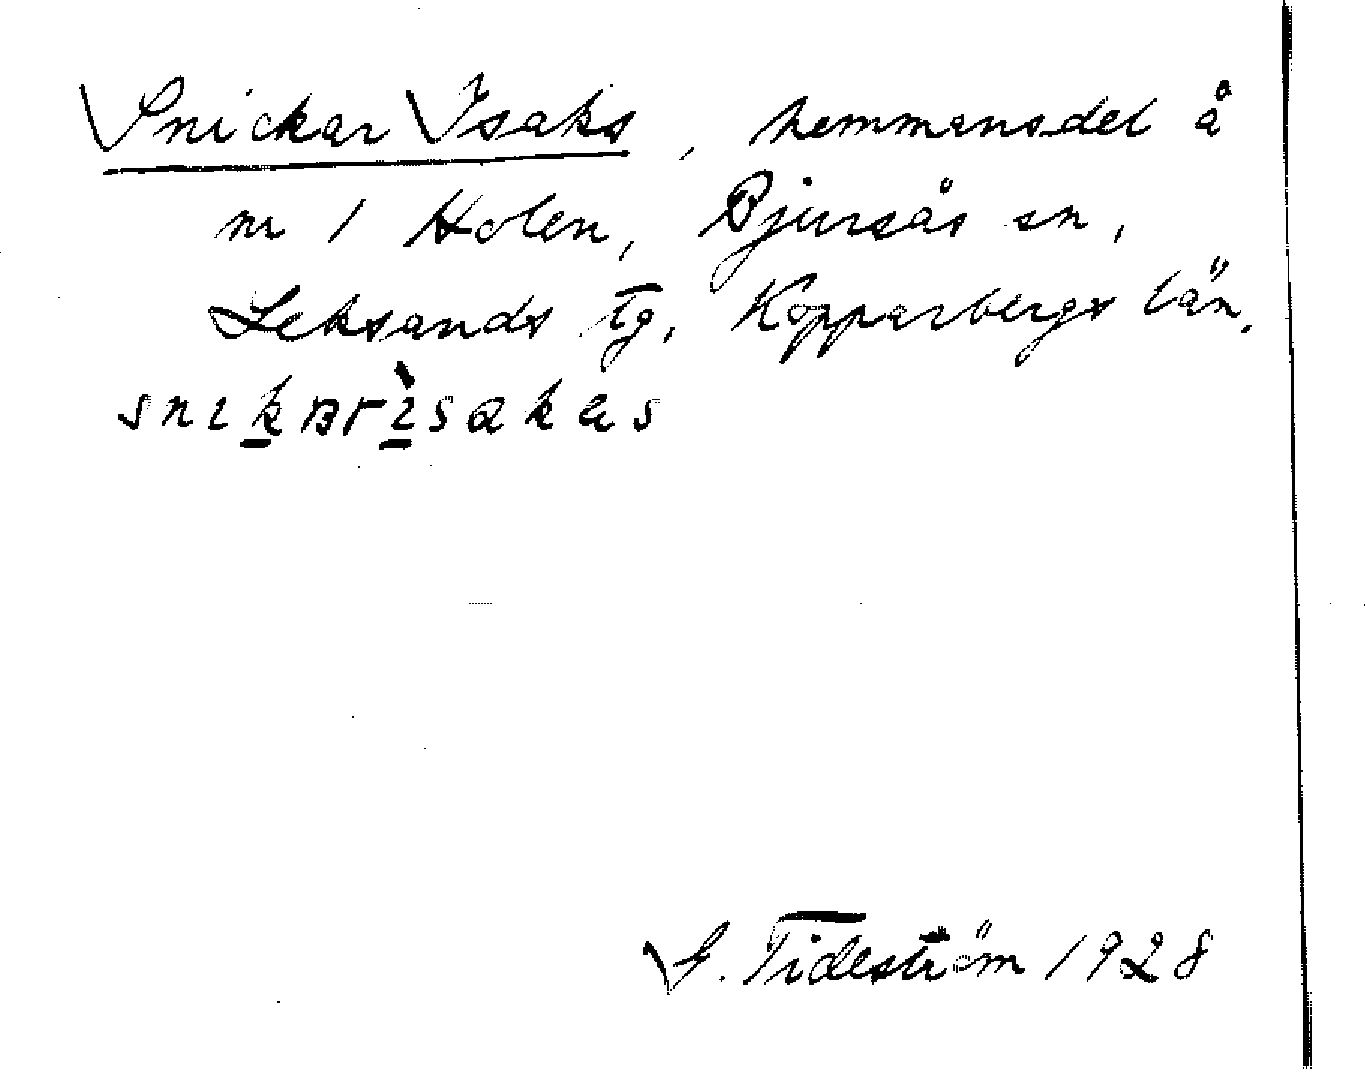 Snickar Isaks, hemmansdel å
nr 1 Holen, Bjursås sn,
Leksands tg, Kopparbergs län.
G. Tideström 1928